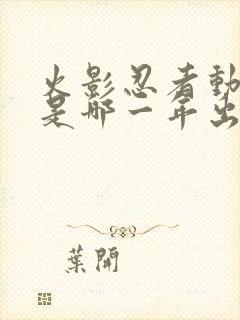 火影忍者動
是哪一年出
葉開